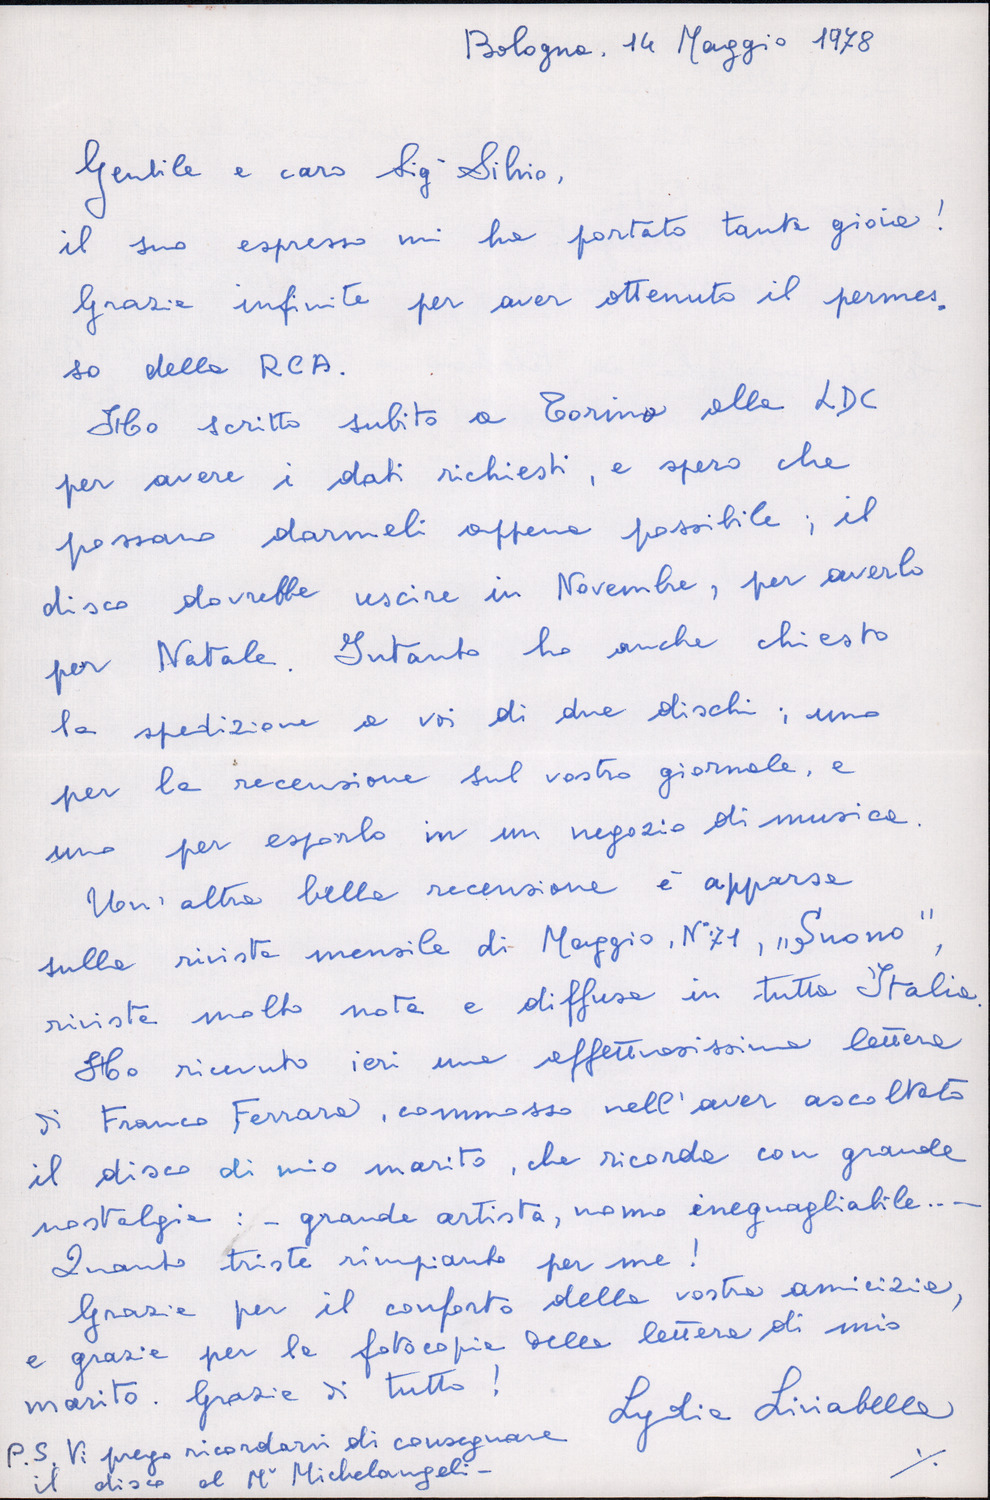 Bologna, 14 Maggio 1978
Gentile e caro Sig. Silvio,
il suo espresso mi ha portato tanta gioia!
Grazie infinite per aver ottenuto il permes-
so della RCA.
Ho scritto subito a Torino alla LDC
per avere i dati richiesti, e spero che
possano darmeli appena possibile; il
disco dovrebbe uscire in Novembre, per averlo
per Natale. Intanto ho anche chiesto
la spedizione a voi di due dischi; uno
per la recensione sul vostro giornale, e
uno per esporlo in un negozio di musica.
Un'altra bella recensione è apparsa
sulla rivista mensile di Maggio, N° 71, "Suono",
rivista molto nota e diffusa in tutta Italia.
Ho ricevuto ieri una affettuosissima lettera
di Franco Ferrara, commosso nell'aver ascoltato
il disco di mio marito, che ricorda con grande
nostalgia: - grande artista, uomo ineguagliabile.. -
Quanto triste rimpianto per me!
Grazie per il conforto della vostra amicizia,
e grazie per la fotocopia della lettera di mio
marito. Grazie di tutto!
Lydia Liviabella
P.S. Vi prego ricordarvi di consegnare
il disco al M° Michelangeli -
./.